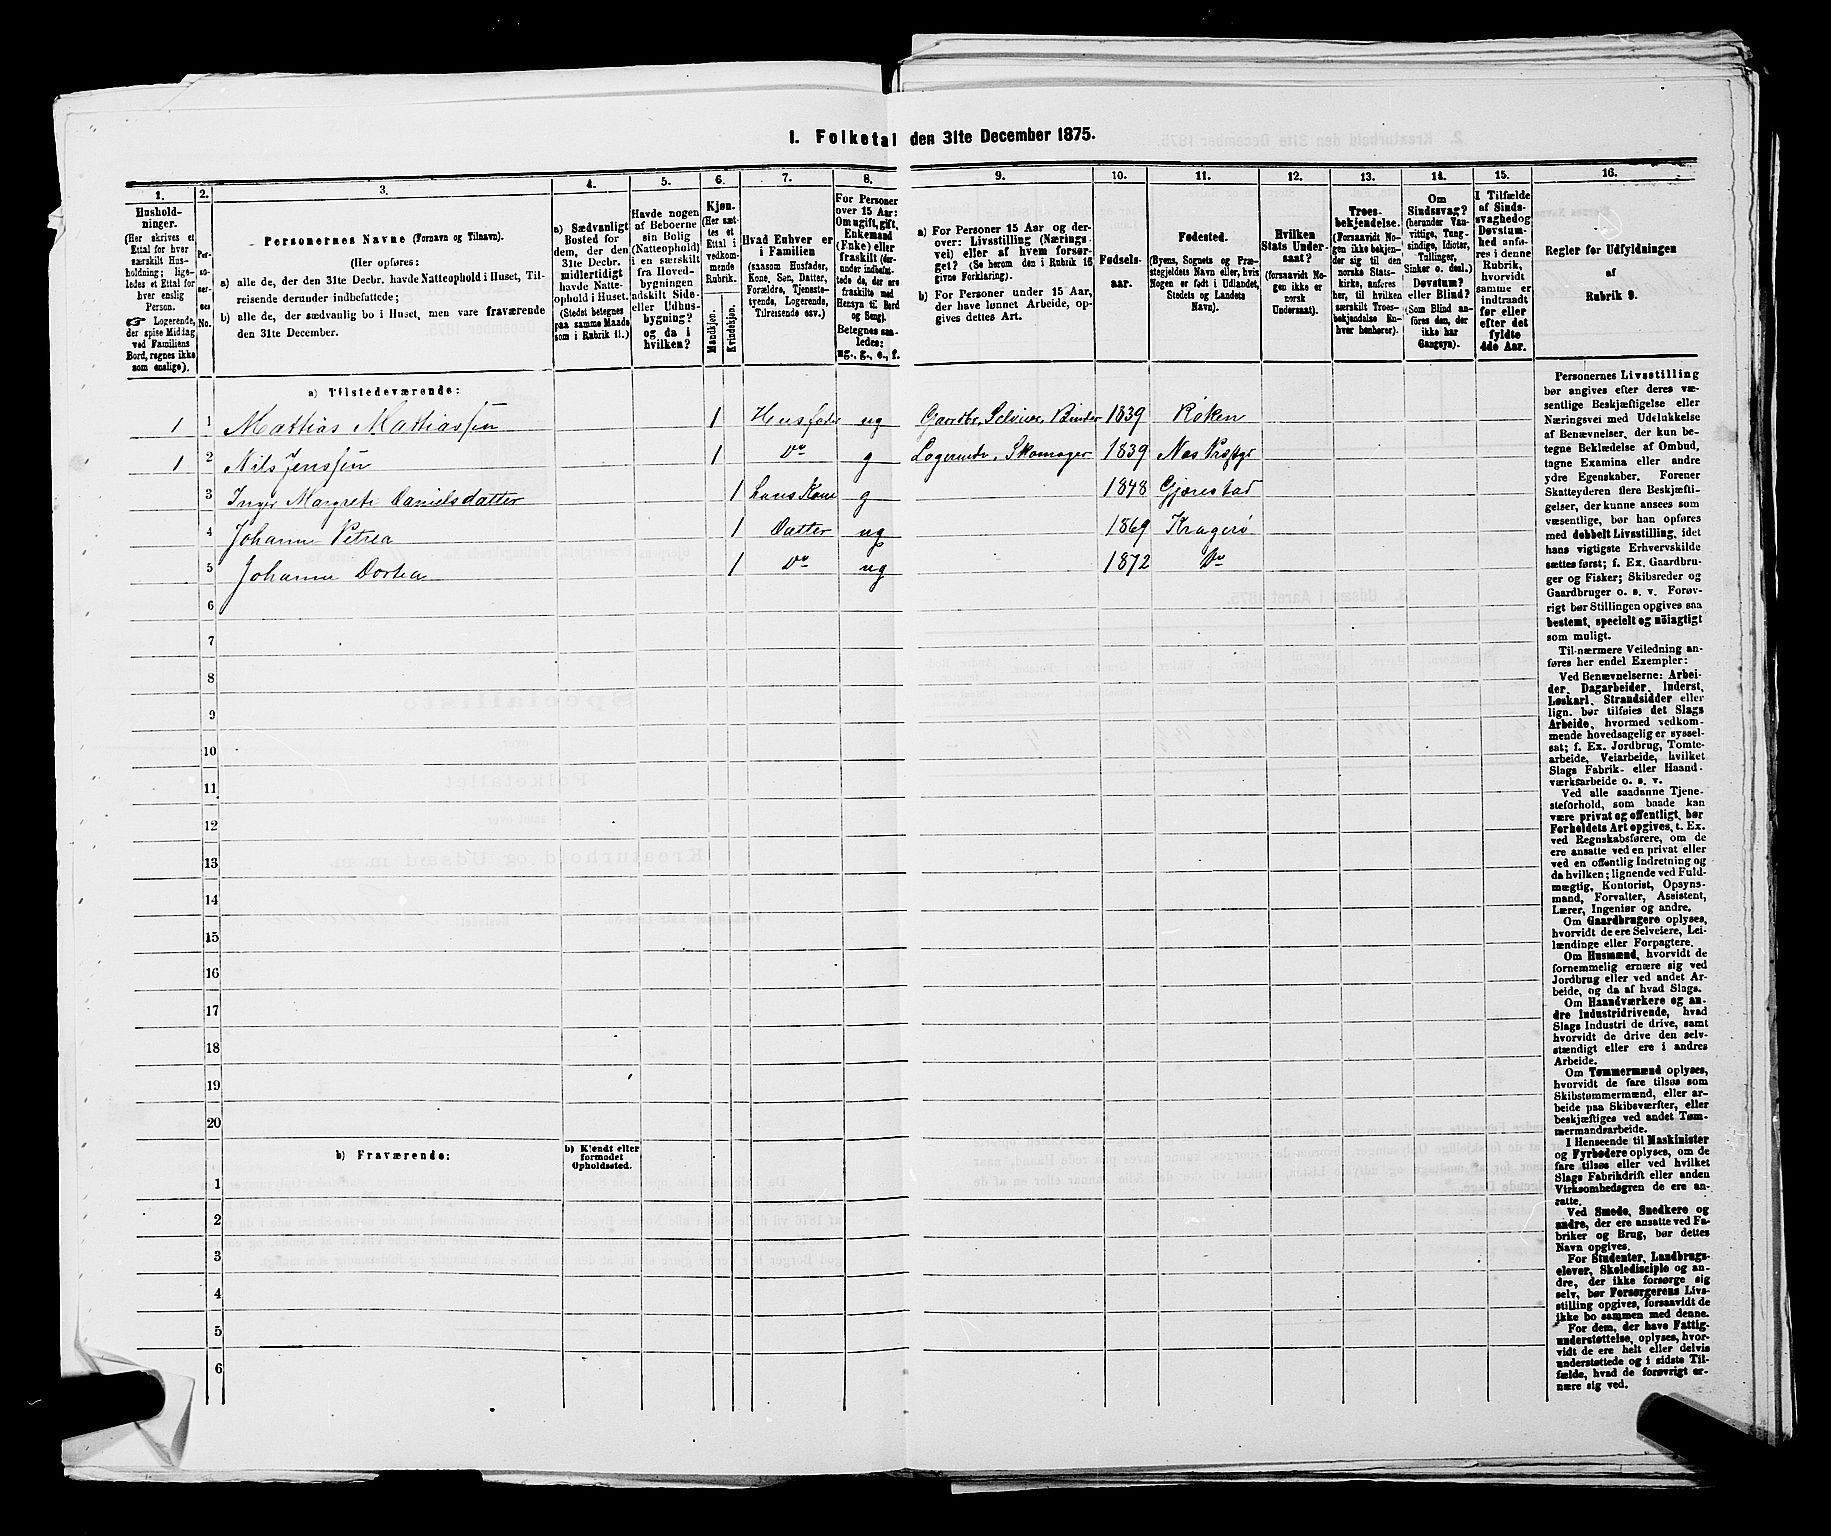 1. Folketal den 31te December 1875.
1. 2. 3. 4. 5. 6. 7. 8. 9. 10. 11. 12. 13. 14. 15. 16.
Hushold-
ninger.
(Her skrives et
Ettal for hver
særskilt Hus-
holdning; lige-
ledes et Ettal for
hver enslig
Person.
☞ Logerende,
der spise Middag
ved Familiens
Bord, regnes ikke
som enslige).
Per-
so-
ner-
nes
No.
Personernes Navne (Fornavn og Tilnavn).
(Her opføres:
a) alle de, der den 31te Decbr. havde Natteophold i Huset, Til-
reisende derunder indbefattede;
b) alle de, der sædvanlig bo i Huset, men vare fraværende
den 31te December.
a) Sædvanligt
Bosted for
dem, der den
31te Decbr.
midlertidigt
havde Natte-
ophold i Huset.
(Stedet betegnes
paa samme Maade
som i Rubrik 11.)
Havde nogen
af Beboerne
sin Bolig
(Natteophold)
i en særskilt
fra Hoved-
bygningen
adskilt Side-
eller Udhus-
bygning?
og da i
hvilken?
Kjøn.
(Her sæt-
tes et
Ettal i
vedkom-
mende
Rubrik.
Mandkjøn.
Kvindekjøn.
Hvad Enhver er
i Familien
(saasom Husfader,
Kone, Søn, Datter,
Forældre, Tjeneste-
tyende, Logerende,
Tilreisende osv.)
For Personer
over 15 Aar:
Om ugift, gift,
Enkemand
(Enke) eller
fraskilt (der-
under indbefat-
tede de, der ere
fraskilte med
Hensyn til Bord
og Seng).
Betegnes saa-
ledes:
ug., g., e., f.
a) For Personer 15 Aar og der-
over: Livsstilling (Nærings-
vei) eller af hvem forsør-
get? (Se herom den i Rubrik 16
givne Forklaring).
b) For Personer under 15 Aar,
der have lønnet Arbeide, op-
gives dettes Art.
Fødsels-
aar.
Fødested.
(Byens, Sognets og Præ-
stegjeldets Navn eller, hvis
Nogen er født i Udlandet,
Stedets og Landets
Navn).
Hvilken
Stats Under-
saat?
(forsaavidt No-
gen ikke er
norsk
Undersaat).
Troes-
bekjendelse.
(Forsaavidt No-
gen ikke bekjen-
der sig til den
norske Stats-
kirke, anføres
her, til hvilken
særskilt Troes-
bekjendelse En-
hver henhører).
Om
Sindssvag?
(herunder Van-
vittige, Tung-
sindige, Idioter,
Tullinger,
Sinker o. desl.)
Døvstum?
eller Blind?
(Som Blind an-
føres den, der
ikke har
Gangsyn).
I Tilfælde
af Sinds-
svaghed og
Døvstum-
hed anfø-
res i denne
Rubrik,
hvorvidt
samme er
indtraadt
før eller
efter det
fyldte
4de Aar.
Regler for Udfyldningen
af
Rubrik 9.
a) Tilstedeværende:
1 1 Mathias Mathiassen 1 Husfader ug Gaardbr. Selveier, Binder 1839 Røken
1 2 Nils Jenssen 1 Do g Logerende, Skomager 1839 Nes Præstgj
3 Inger Margrete Danielsdatter 1 hans Kone g 1848 Gjerestad
4 Johanne Petrea 1 Datter ug 1869 Kragerø
5 Johanne Dortea 1 Do ug 1872 Do
6
7
8
9
10
11
12
13
14
15
16
17
18
19
20
b) Fraværende:
b) Kjendt eller
formodet
Opholdssted.
1
2
3
4
5
6
Personernes Livsstilling
bør angives efter deres væ-
sentlige Beskjæftigelse eller
Næringsvei med Udelukkelse
af Benævnelser, der kun be-
tegne Beklædelse af Ombud,
tagne Examina eller andre
ydre Egenskaber. Forener
Skatteyderen flere Beskjæfti-
gelser, der kunne ansees som
væsentlige, bør han opføres
med dobbelt Livsstilling, idet
hans vigtigste Erhvervskilde
sættes først; f. Ex. Gaardbru-
ger og Fisker; Skibsreder og
Gaardbruger o. s. v. Forøv-
rigt bør Stillingen opgives saa
bestemt, specielt og nøiagtigt
som muligt.
Til nærmere Veiledning an-
føres her endel Exempler:
Ved Benævnelserne: Arbei-
der, Dagarbeider, Inderst,
Løskarl, Strandsidder eller
lign. bør tilføies det Slags
Arbeide, hvormed vedkom-
mende hovedsagelig er syssel-
sat; f. Ex. Jordbrug, Tomte-
arbeide, Veiarbeide, hvilket
Slags Fabrik- eller Haand-
værksarbeide o. s. v.
Ved alle saadanne Tjene-
steforhold, som baade kan
være privat og offentligt, bør
Forholdets Art opgives, t. Ex.
ved Regnskabsførere, om de
ere ansatte ved en privat eller
ved en offentlig Indretning og
da hvilken; lignende ved Fuld-
mægtig, Kontorist, Opsyns-
mand, Forvalter, Assistent,
Lærer, Ingeniør og andre.
Om Gaardbrugere oplyses,
hvorvidt de ere Selveiere, Lei-
lændinge eller Forpagtere.
Om Husmænd, hvorvidt de
fornemmelig ernære sig ved
Jordbrug eller ved andet Ar-
beide, og da af hvad Slags.
Om Haandværkere og an-
dre Industridrivende, hvad
Slags Industri de drive, samt
hvorvidt de drive den selv-
stændigt eller ere i andres
Arbeide.
Om Tømmermænd oplyses,
hvorvidt de fare tilsøs som
Skibstømmermænd, eller ar-
beide paa Skibsværfter, eller
beskjæftiges ved andet Tøm-
mermandsarbeide.
I Henseende til Maskinister
og Fyrbødere oplyses, om de
fare tilsøs eller ved hvilket
Slags Fabrikdrift eller anden
Virksomhedsgren de ere an-
satte.
Ved Smede, Snedkere og
andre, der ere ansatte ved Fa-
briker og Brug, bør dettes
Navn opgives.
For Studenter, Landbrugs-
elever, Skoledisciple og an-
dre, der ikke forsørge sig
selv, bør Forsørgerens Livs-
stilling opgives, forsaavidt de
ikke bo sammen med denne.
For dem, der have Fattig-
understøttelse, oplyses, hvor-
vidt de ere helt eller delvis
understøttede og i sidste Til-
fælde, hvad de forøvrigt er-
nære sig ved.